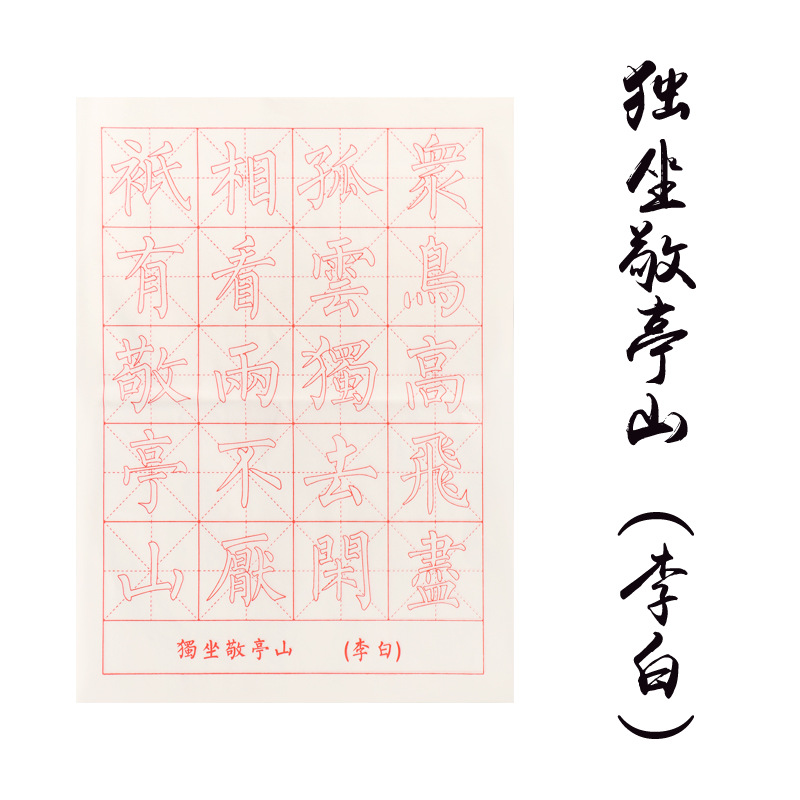 衆鳥高飛盡
孤雲獨去閑
相看兩不厭
衹有敬亭山
獨坐敬亭山 (李白)
独坐敬亭山（李白）